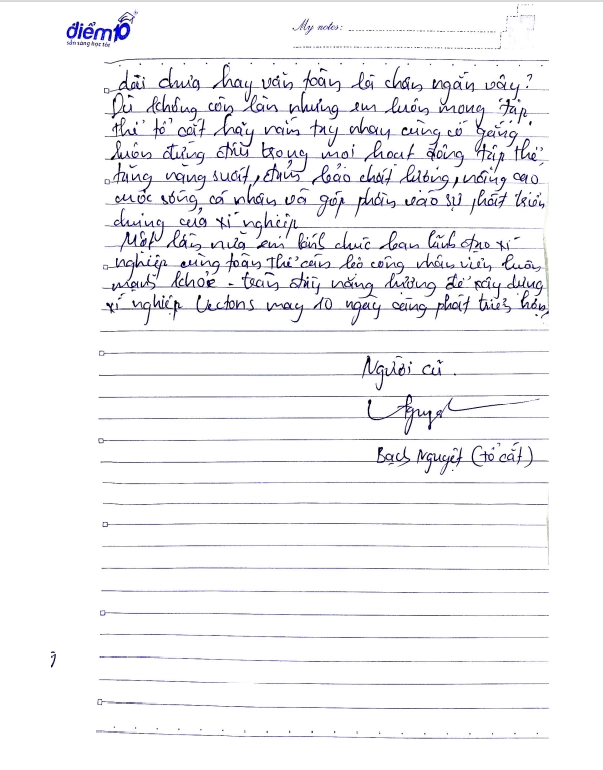 điểm10
sẵn sàng học tốt
My notes:
dài chưa hay vẫn toàn là chân ngắn vậy?
Dù không còn làm nhưng em luôn mong tập
thể tổ cắt hãy nắm tay nhau cùng cố gắng
luôn đứng đầu trong mọi hoạt động tập thể
tăng năng suất, đảm bảo chất lượng, nâng cao
cuộc sống cá nhân và góp phần vào sự phát triển
chung của xí nghiệp
Một lần nữa em kính chúc ban lãnh đạo xí
nghiệp cùng toàn thể cán bộ công nhân viên luôn
mạnh khỏe - tràn đầy năng lượng để xây dựng
xí nghiệp Vectons may 10 ngày càng phát triển hơn
Người cũ.
Bạch Nguyệt (tổ cắt)